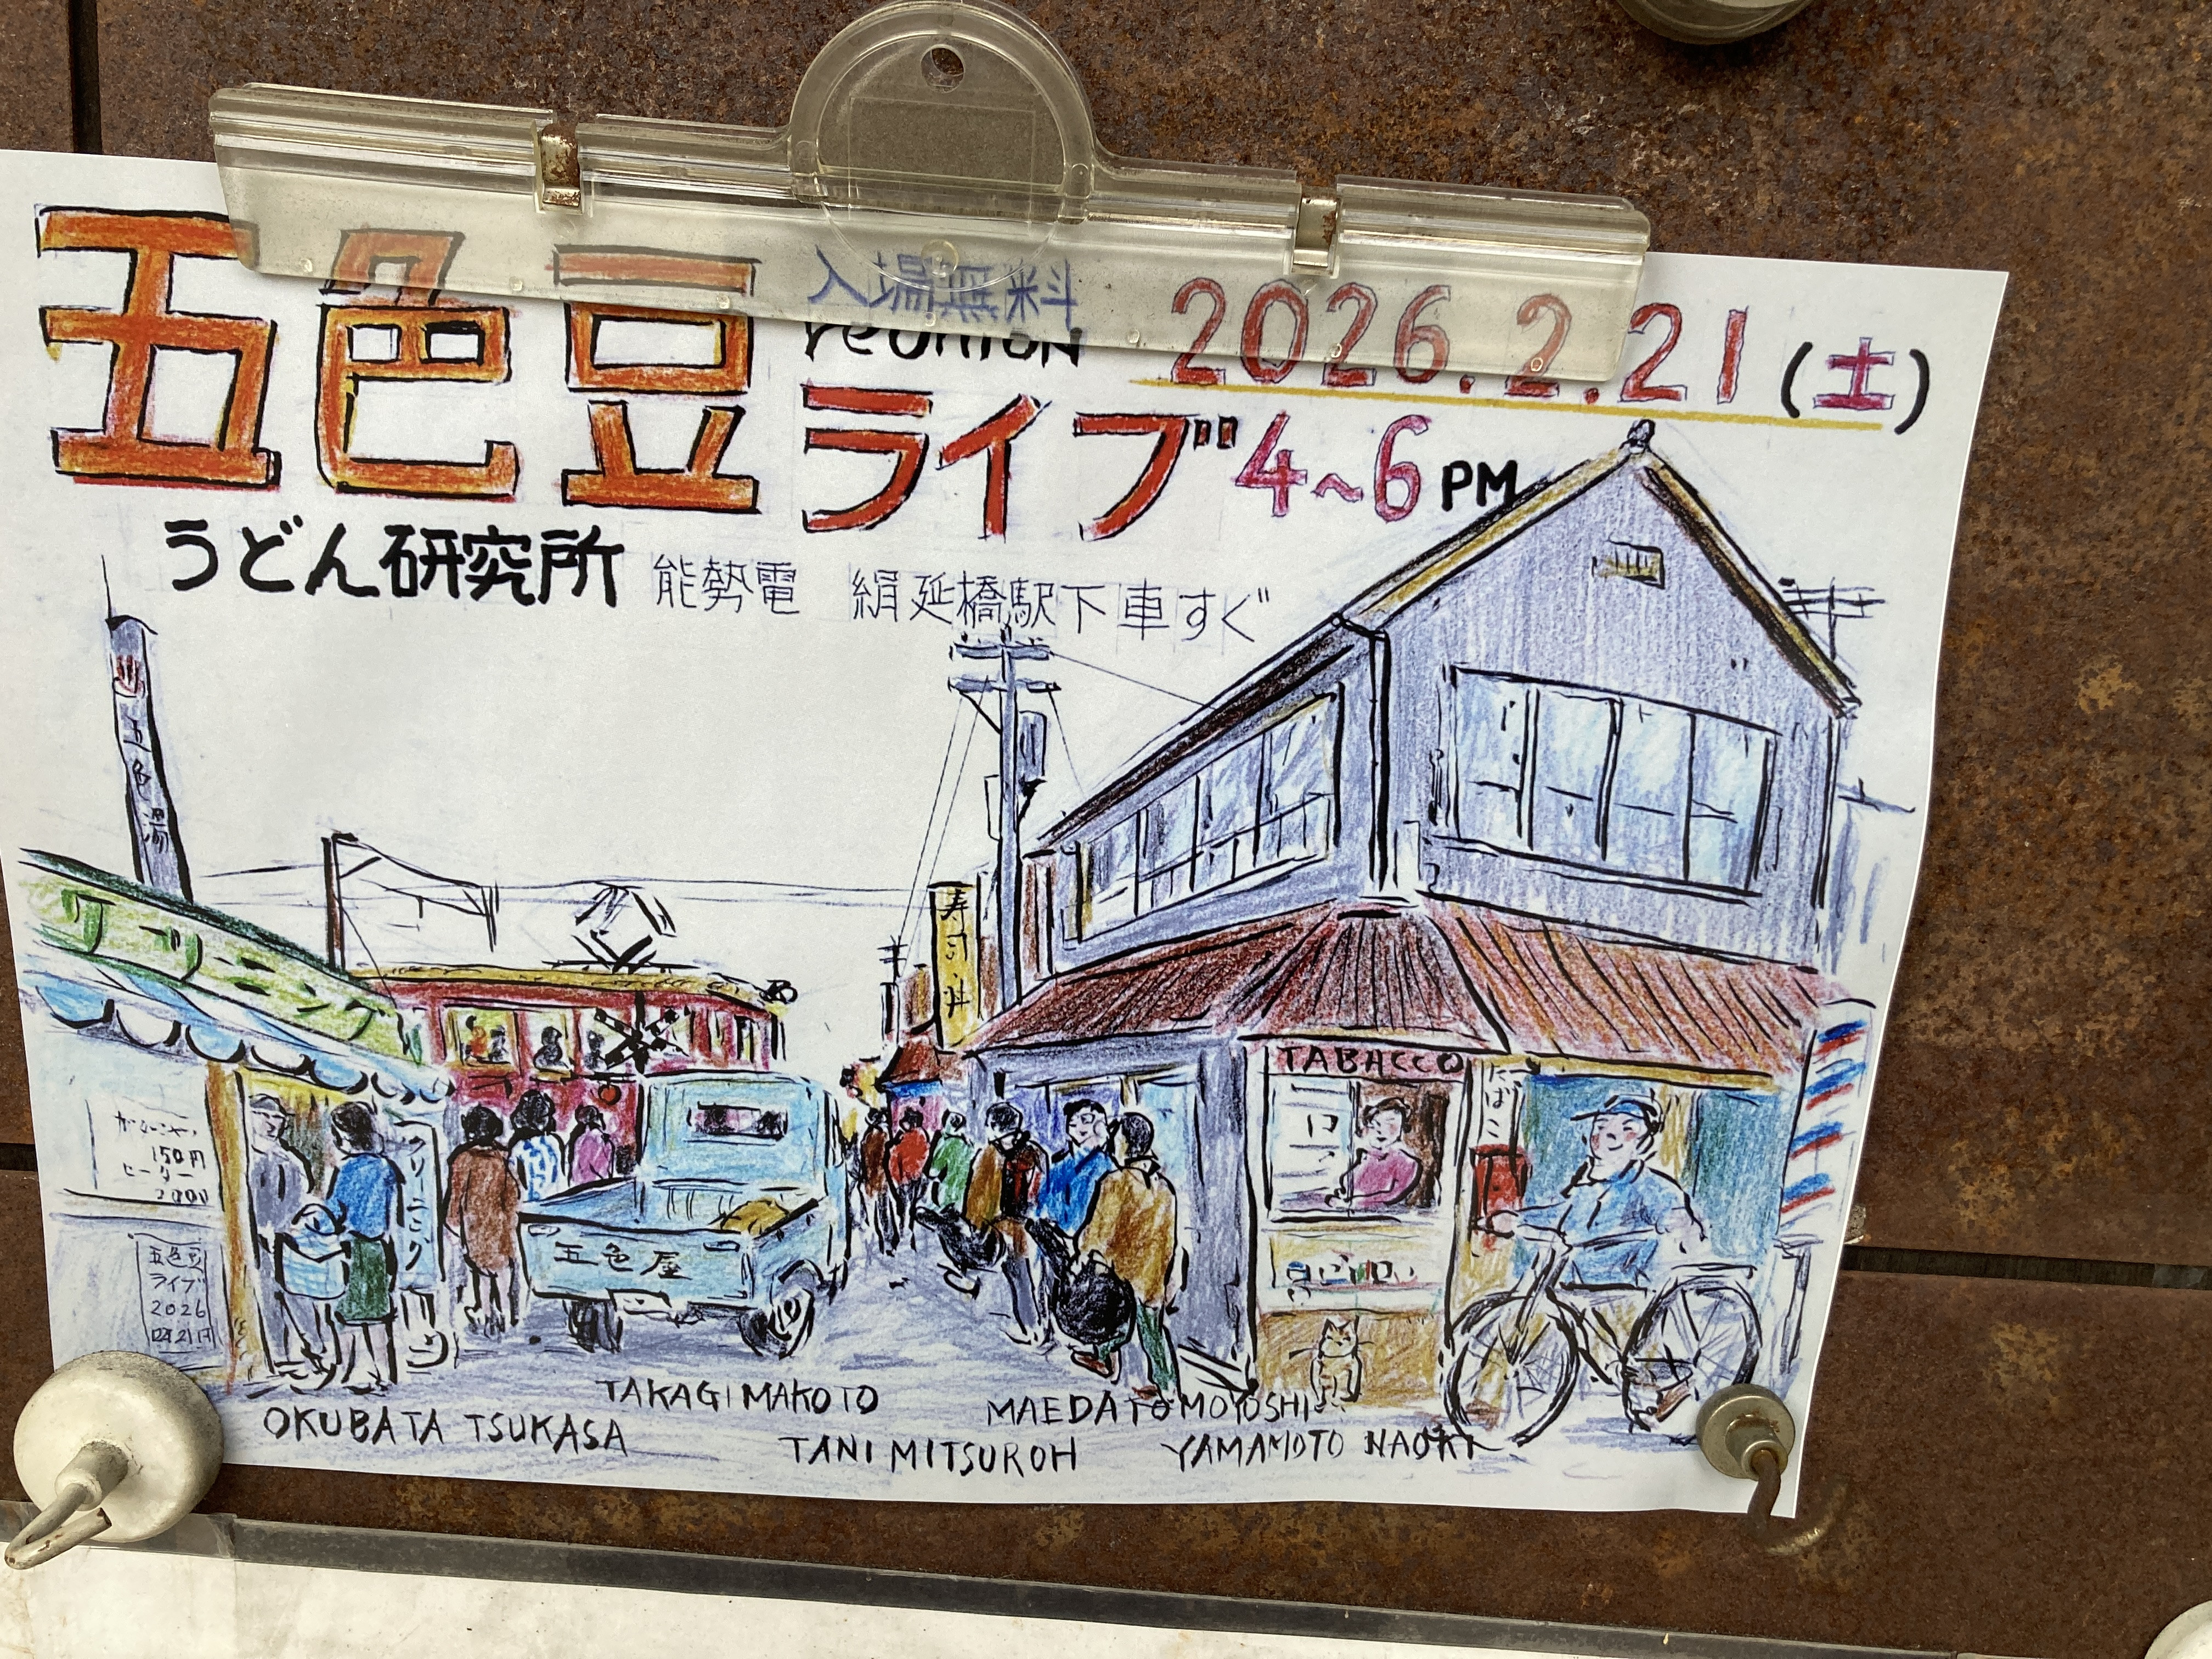 五色豆
入場無料
reunion
ライブ
2026.2.21(土)
4~6 PM
うどん研究所
能勢電 絹延橋駅下車すぐ
五色湯
クリーニング
寿司・丼
TABACCO
たばこ
150円
クリーニング
五色豆
ライブ
2026
五色屋
TAKAGI MAKOTO
MAEDA TOMOYOSHI
OKUBATA TSUKASA
TANI MITSUROH
YAMAMOTO NAOKI